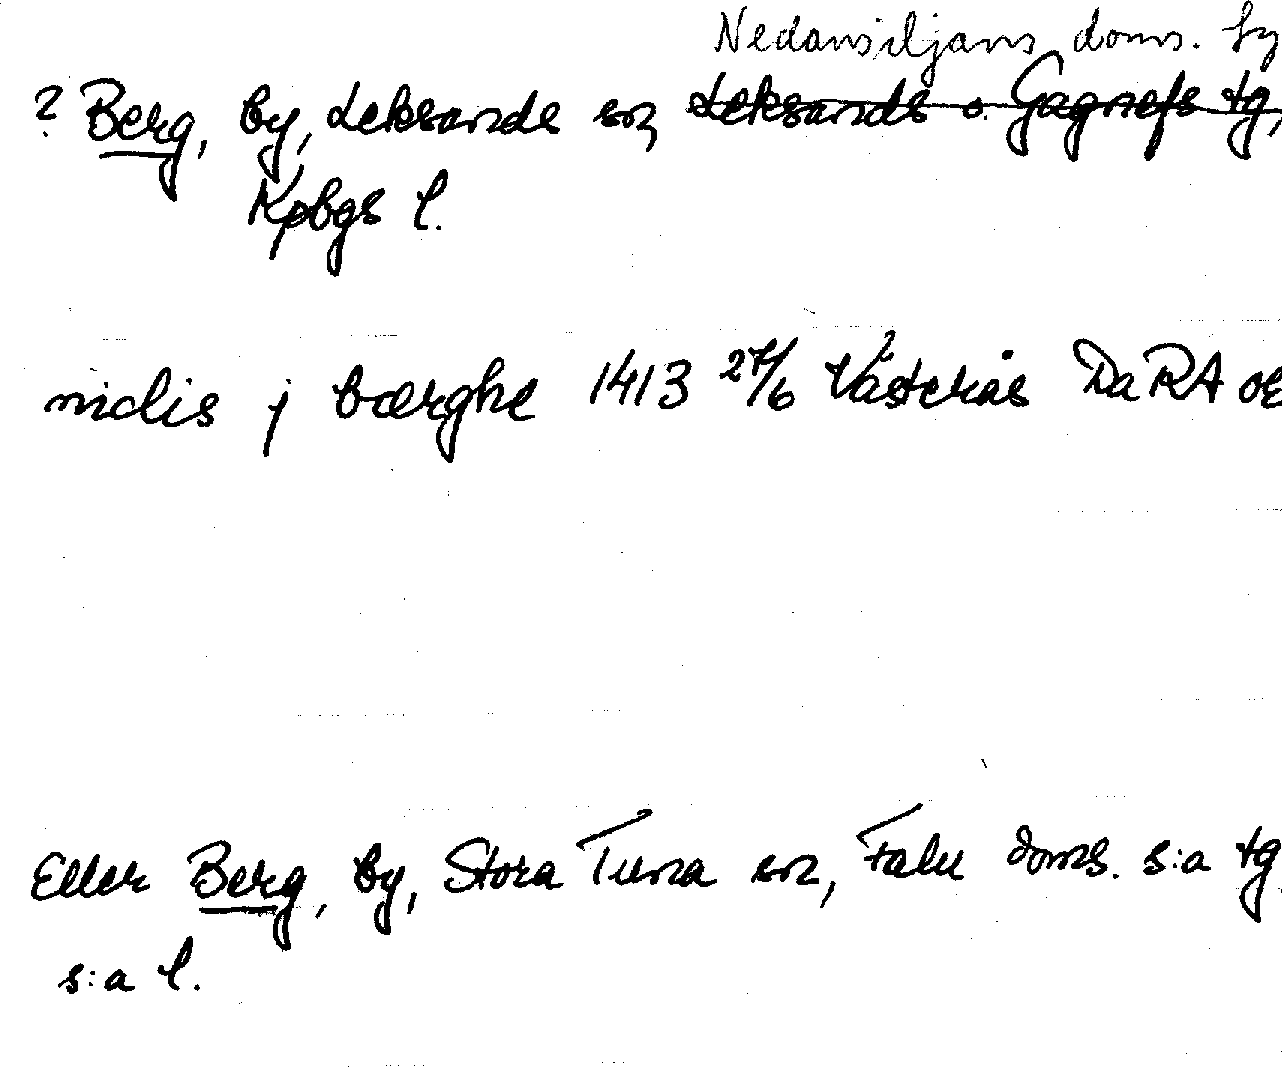 Nedansiljans doms.
? Berg, by, Leksands sn, Leksands o. Gagnefs tg,
Kpbgs l.
niclis j bærghe 1413 27/6 Västerås Da RA or
Eller Berg, by, Stora Tuna sn, Falu doms. s:a tg
s:a l.